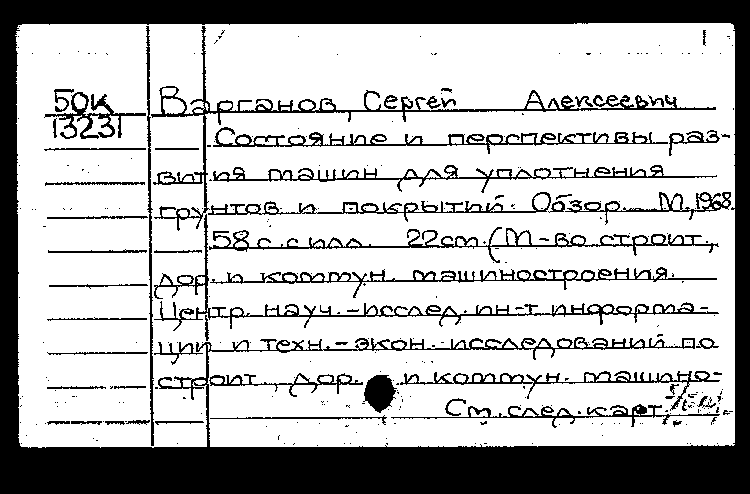 50к Варганов, Сергей Алексеевич
13231 Состояние и перспективы раз-
вития машин для уплотнения
грунтов и покрытий. Обзор. М., 1968.
58 с. с илл. 22 см. (М-во строит.,
дор. и коммун. машиностроения.
Центр. науч.-исслед. ин-т информа-
ции и техн.-экон. исследований по
строит., дор. и коммун. машино-
См. след. карт.